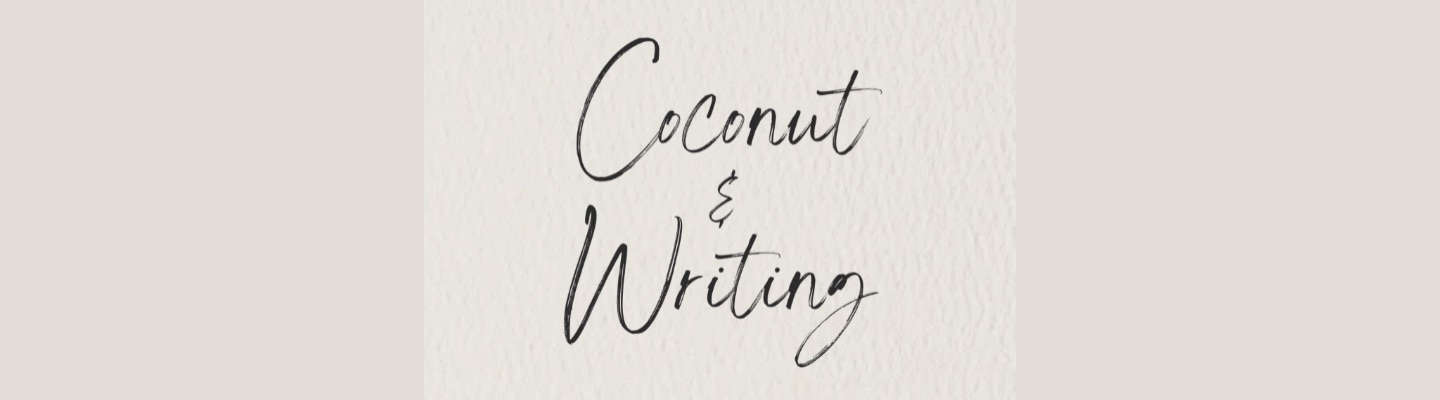 Coconut
&
Writing